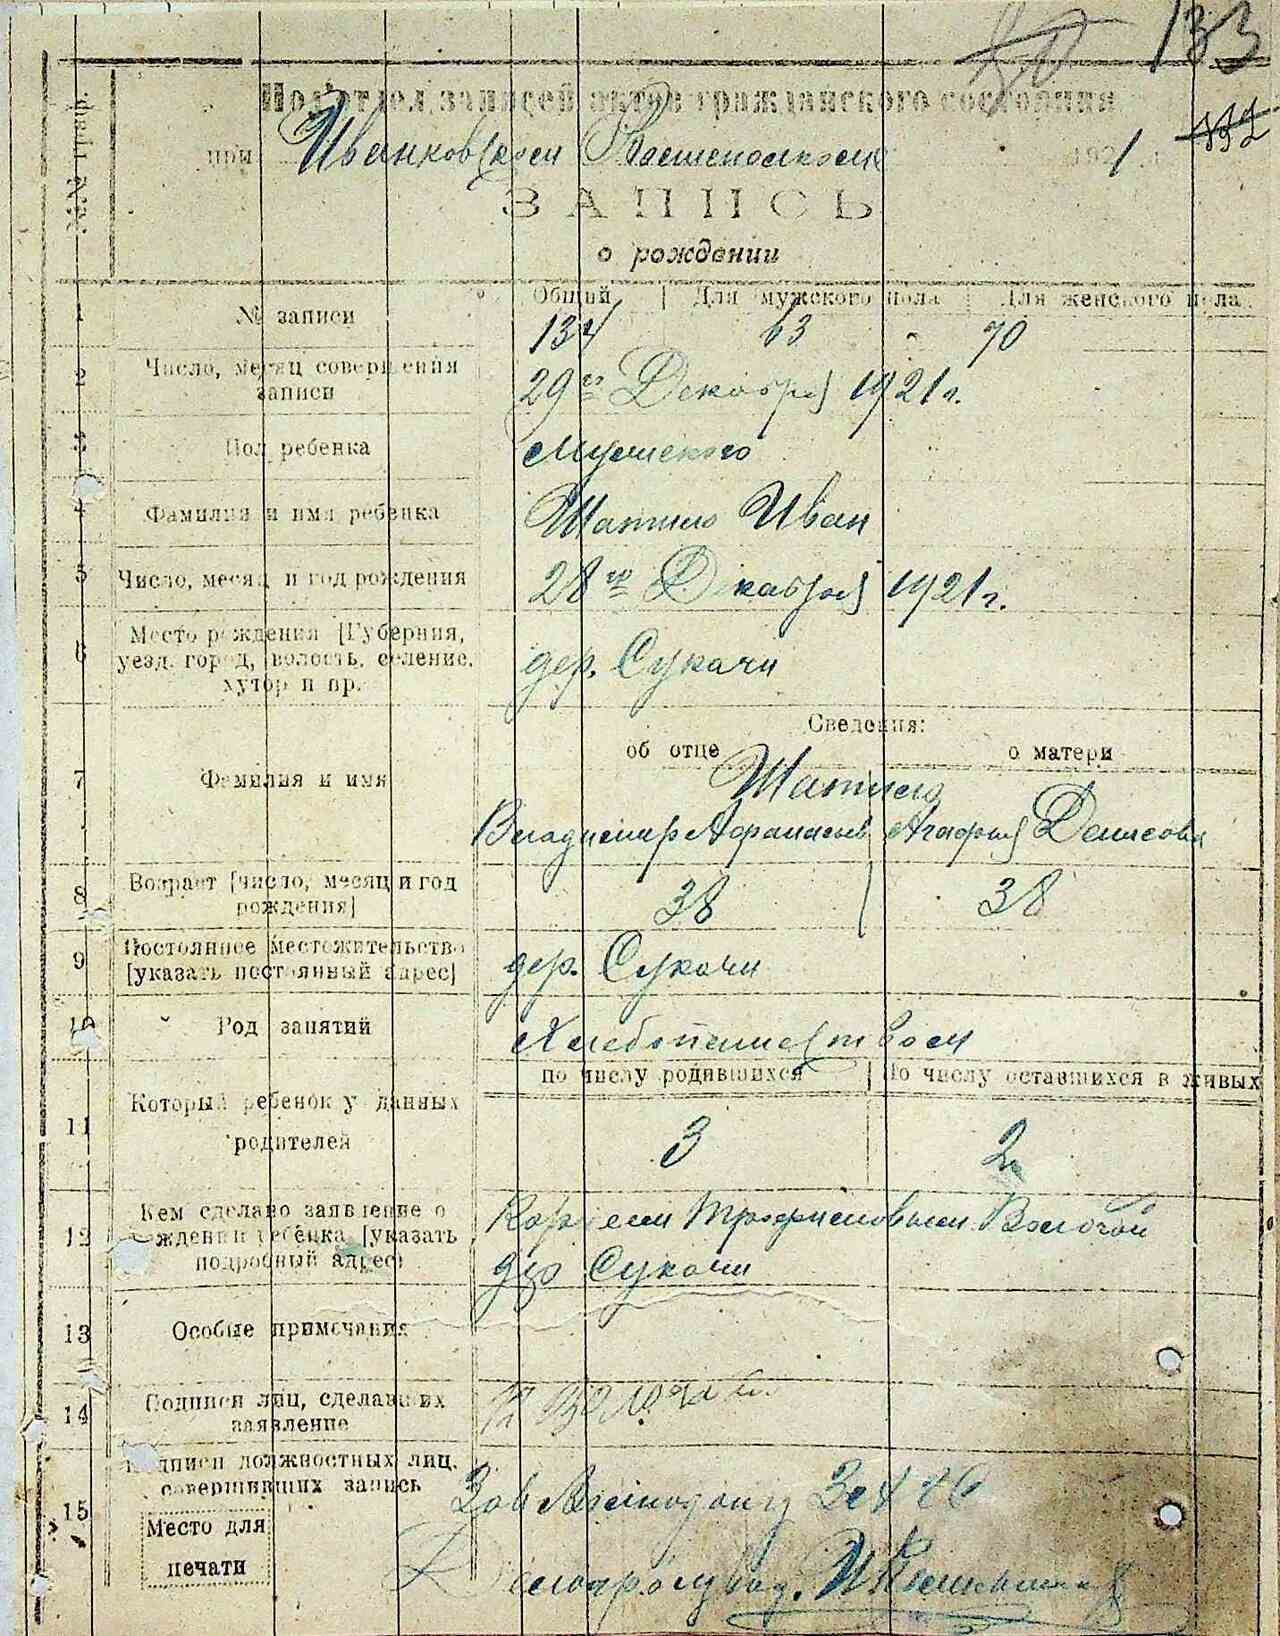 133
132
№№ гр.
Подотдел записей актов гражданского состояния
при Иванковском 1921 г.
ЗАПИСЬ
о рождении
Общий | Для мужского пола | Для женского пола
1 № записи 134 63 70
2 Число, месяц совершения
записи
29го Декабря 1921 г.
3 Пол ребенка мужского
4 Фамилия и имя ребенка Шапило Иван
5 Число, месяц и год рождения 28го Декабря 1921 г.
6 Место рождения [Губерния,
уезд, город, волость, селение,
хутор и пр.
дер. Сукачи
Сведения:
об отце о матери
7 Фамилия и имя Шапило
Владимир Афанасьев Агафия Денисова
8 Возраст [число, месяц и год
рождения]
38 38
9 Постоянное местожительство
[указать постоянный адрес]
дер. Сукачи
10 Род занятий Хлебопашеством
по числу родившихся | По числу оставшихся в живых
11 Который ребенок у данных
родителей
3 2
12 Кем сделано заявление о
рождении ребенка [указать
подробный адрес]
Трофимовым Волочай
дер Сукачи
13 Особые примечания
14 Подписи лиц, сделавших
заявление
15 Подписи должностных лиц,
совершивших запись
Зав
Место для
печати
Делопроизвод.